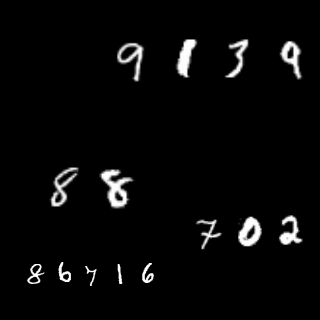 9139
88
702
86716